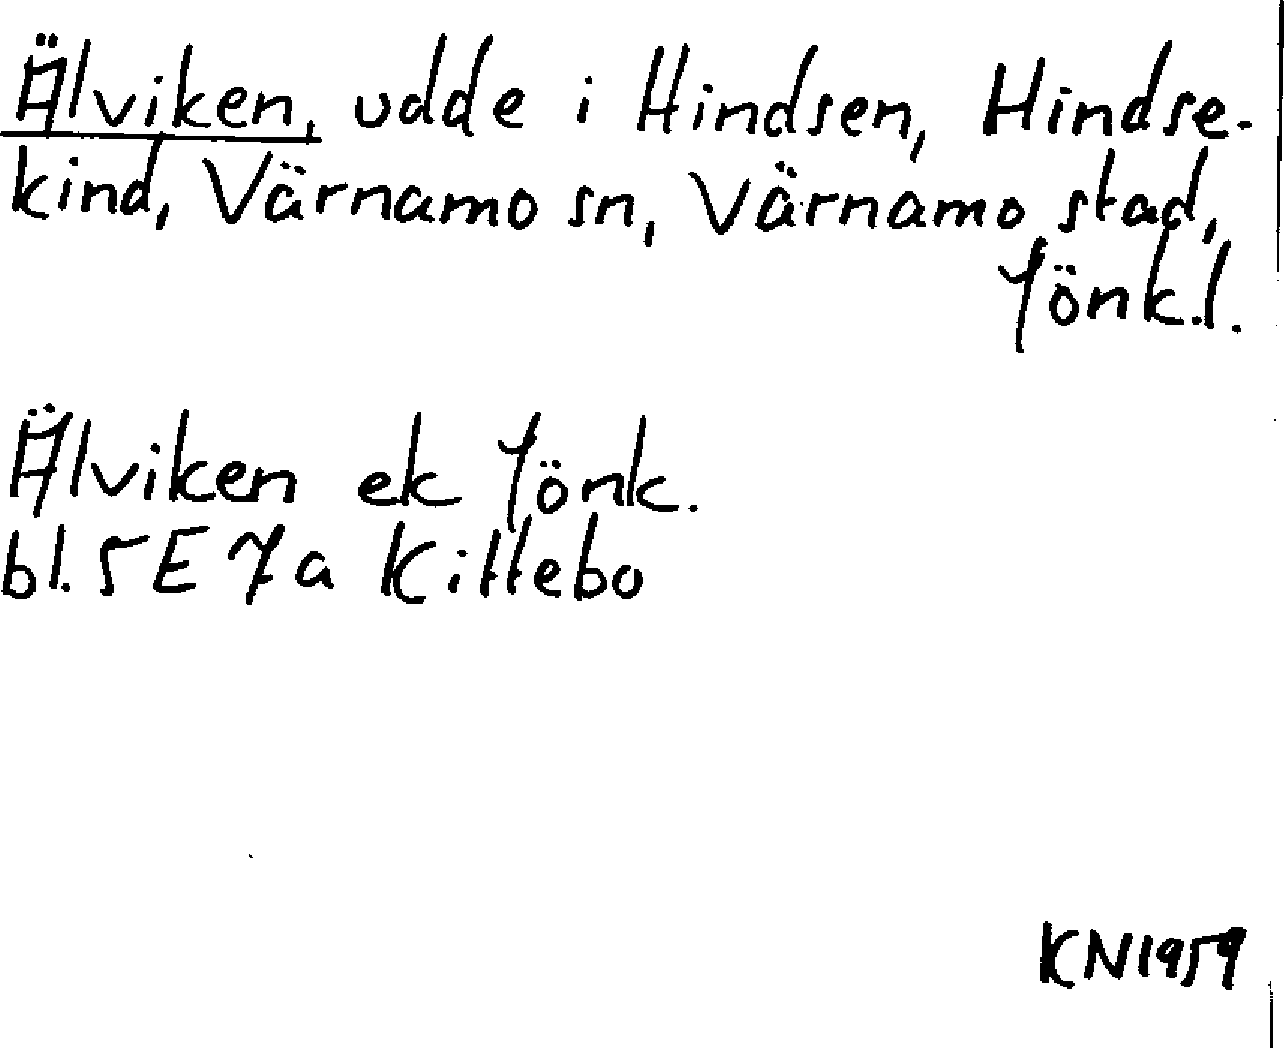 Älviken, udde i Hindsen, Hindse-
kind, Värnamo sn, Värnamo stad,
Jönk.l.
Älviken ek Jönk.
bl. 5E 7a Kittebo
KN1959